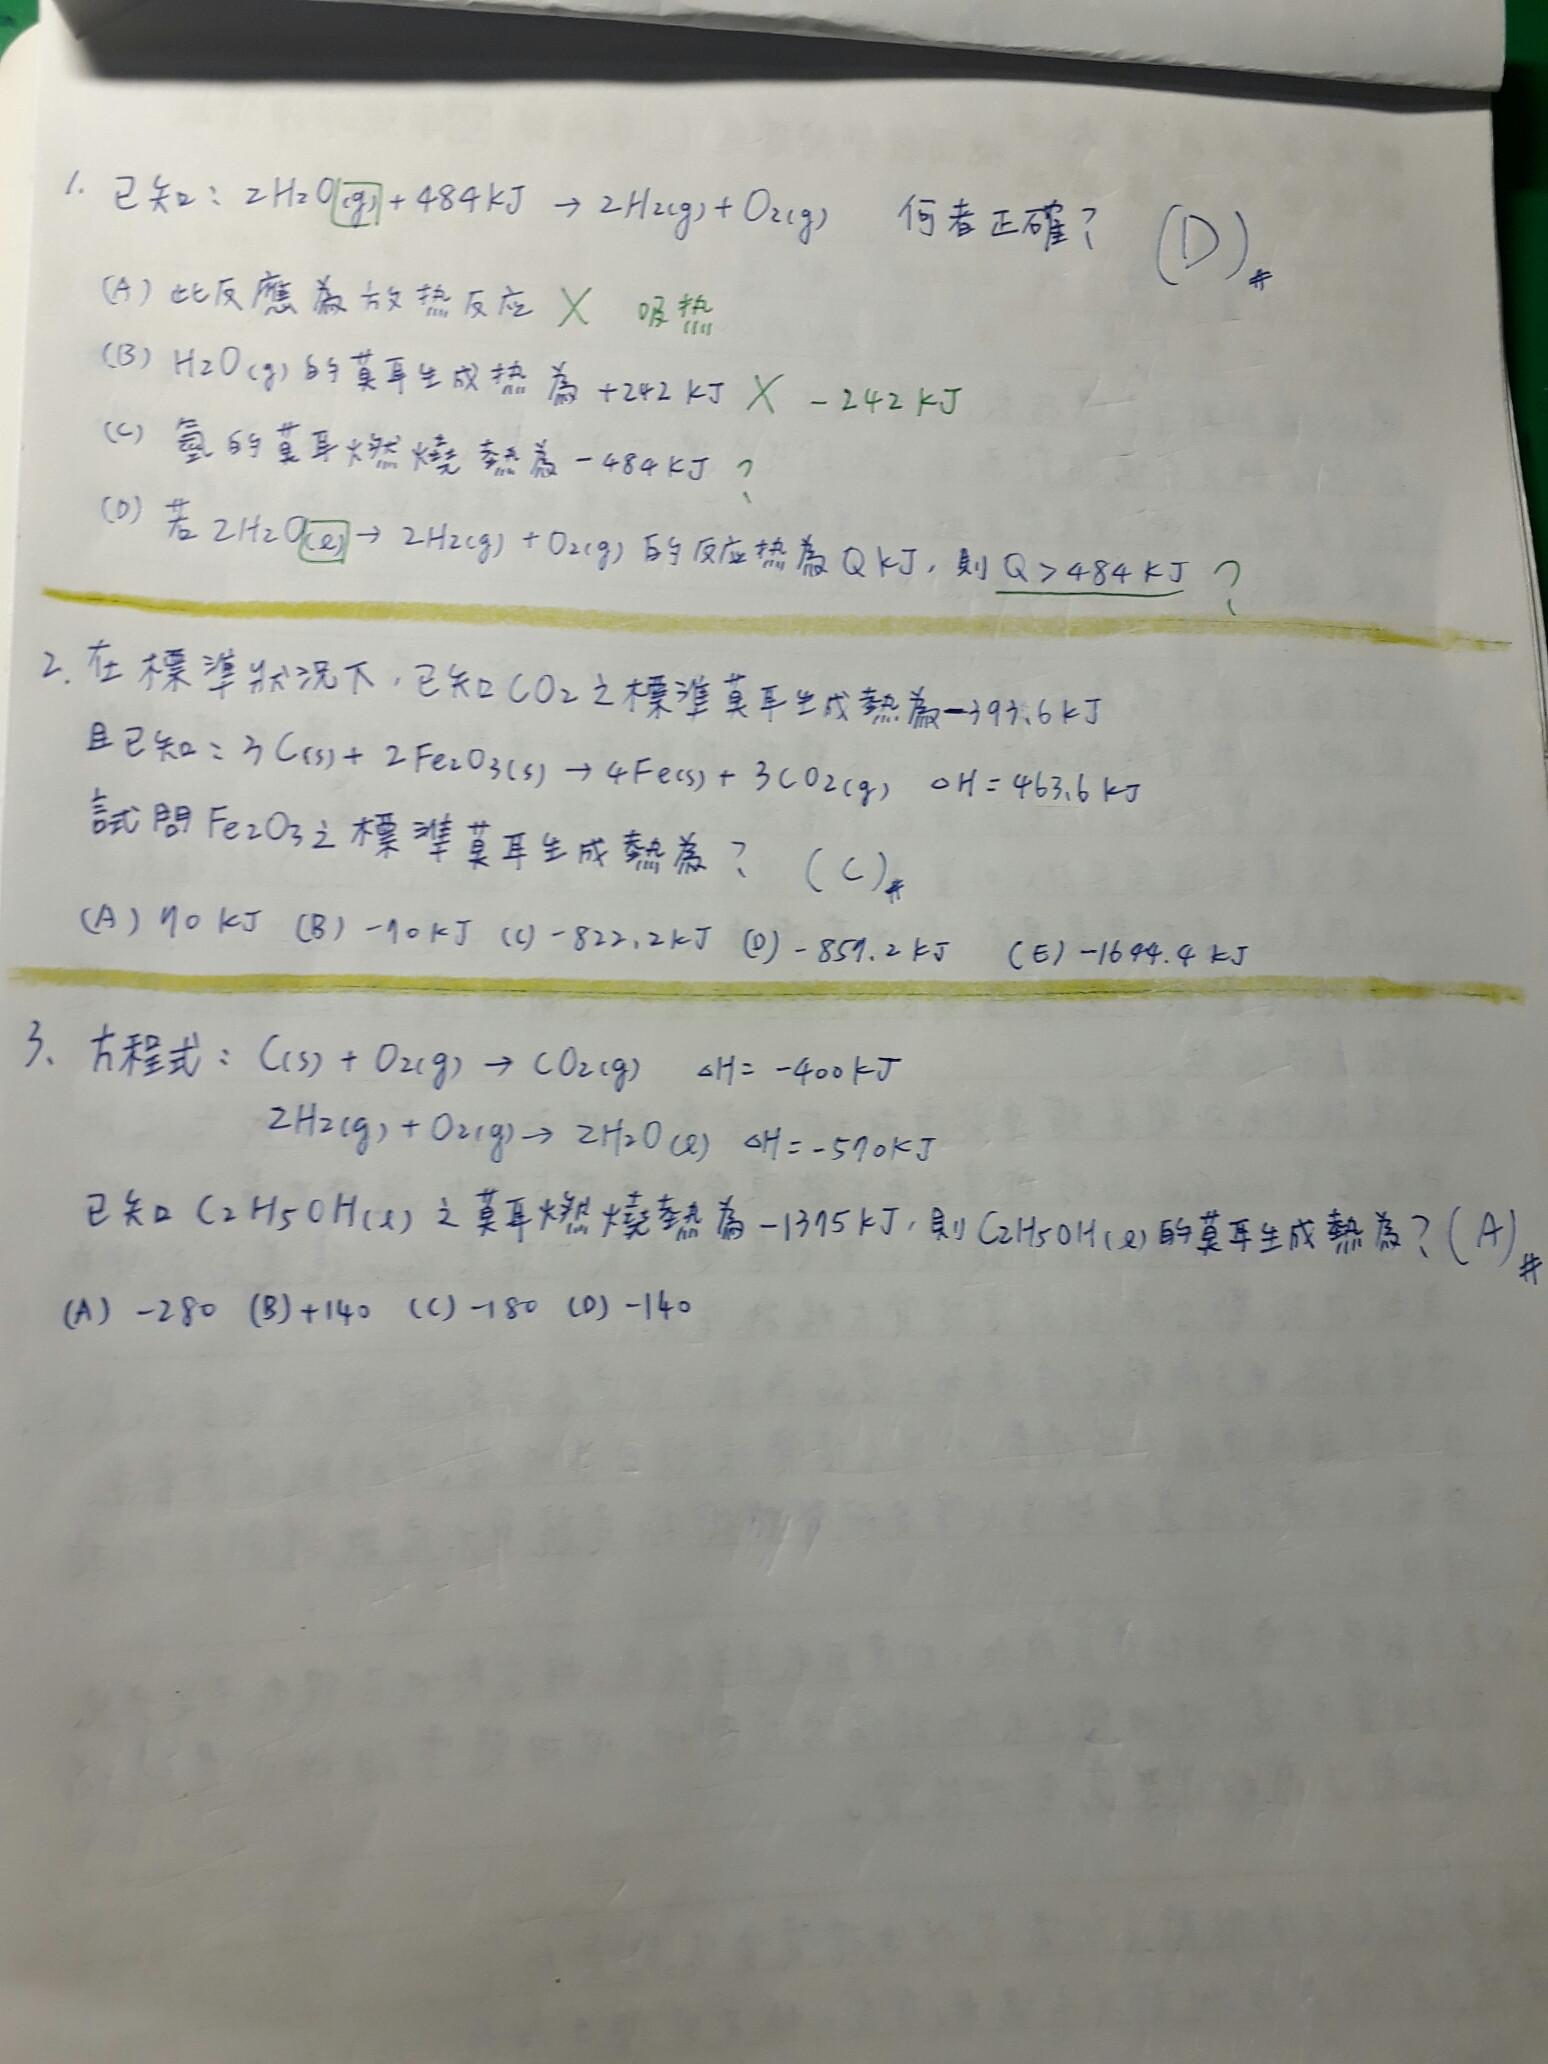 1. 已知：2H2O(g)+484kJ → 2H2(g)+O2(g) 何者正確？ (D)#
(A) 此反應為放热反应 X 吸热
(B) H2O(g) 的莫耳生成热為+242kJ X -242kJ
(C) 氫的莫耳燃燒熱為-484kJ ?
(D) 若2H2O(l)→ 2H2(g)+O2(g) 的反应热為QkJ，則Q>484kJ ?
2. 在標準狀況下，已知CO2之標準莫耳生成熱為-393.6kJ
且已知：3C(s)+2Fe2O3(s)→4Fe(s)+3CO2(g) △H=463.6kJ
試問Fe2O3之標準莫耳生成熱為？ (C)#
(A) 70kJ (B) -70kJ (C) -822.2kJ (D) -857.2kJ (E) -1644.4kJ
3. 方程式：C(s)+O2(g)→CO2(g) △H=-400kJ
2H2(g)+O2(g)→2H2O(l) △H=-570kJ
已知C2H5OH(l)之莫耳燃燒熱為-1375kJ，則C2H5OH(l)的莫耳生成熱為？(A)#
(A) -280 (B)+140 (C)-180 (D)-140